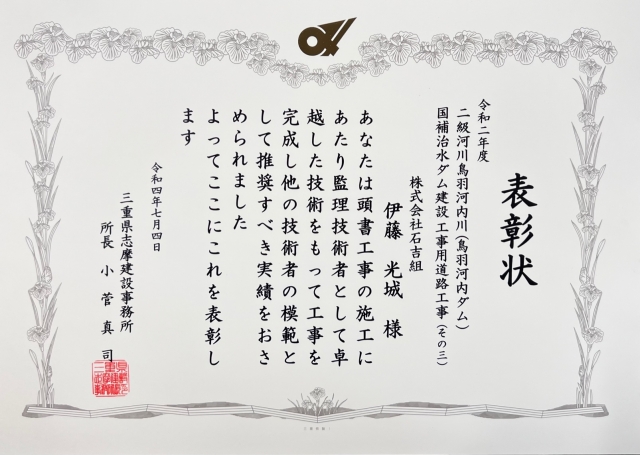 表彰状
令和二年度
二級河川鳥羽河内川(鳥羽河内ダム)
国補治水ダム建設 工事用道路工事(その三)
株式会社石吉組
伊藤 光城 様
あなたは頭書工事の施工に
あたり監理技術者として卓
越した技術をもって工事を
完成し他の技術者の模範と
して推奨すべき実績をおさ
められました
よってここにこれを表彰し
ます
令和四年七月四日
三重県志摩建設事務所
所長 小菅真司